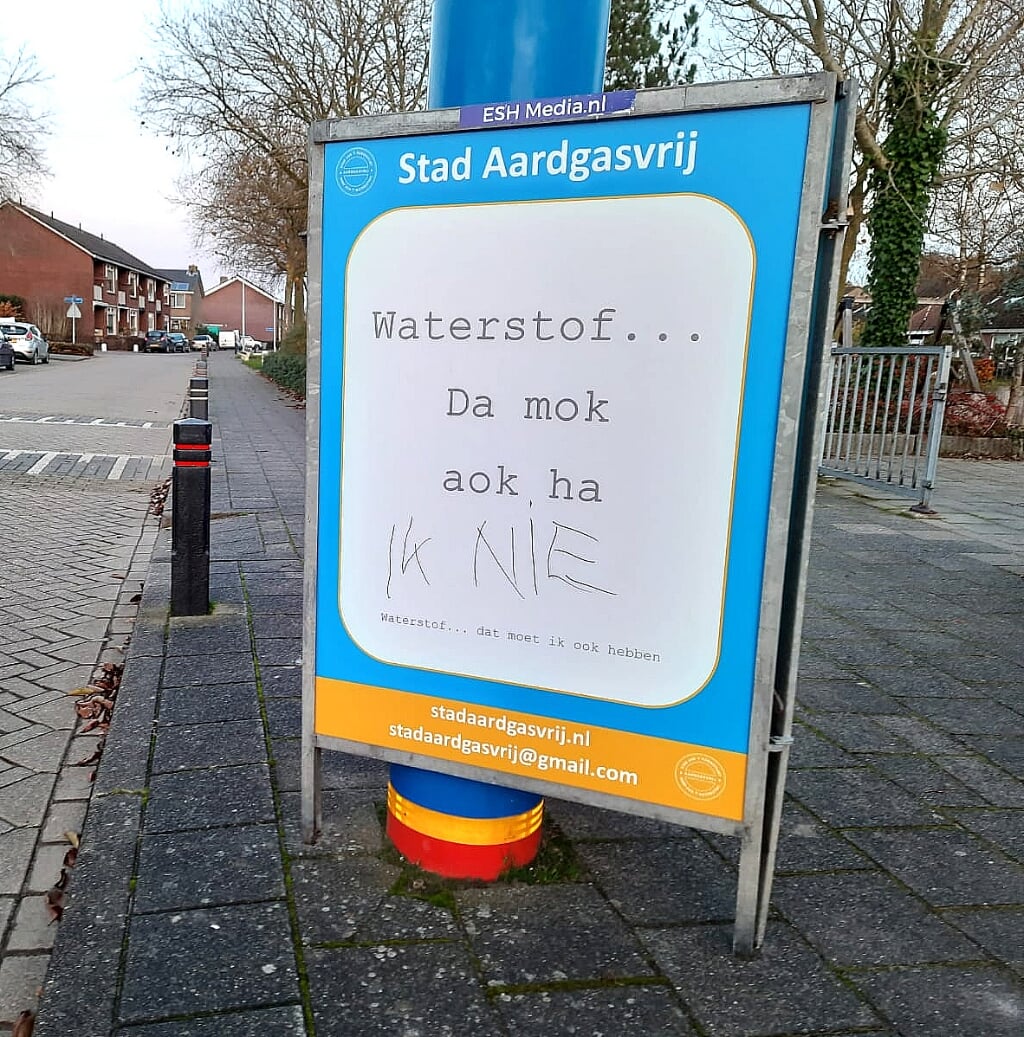 ESH Media.nl
Stad Aardgasvrij
Waterstof...
Da mok
aok ha
IK NIE
Waterstof... dat moet ik ook hebben
stadaardgasvrij.nl
stadaardgasvrij@gmail.com